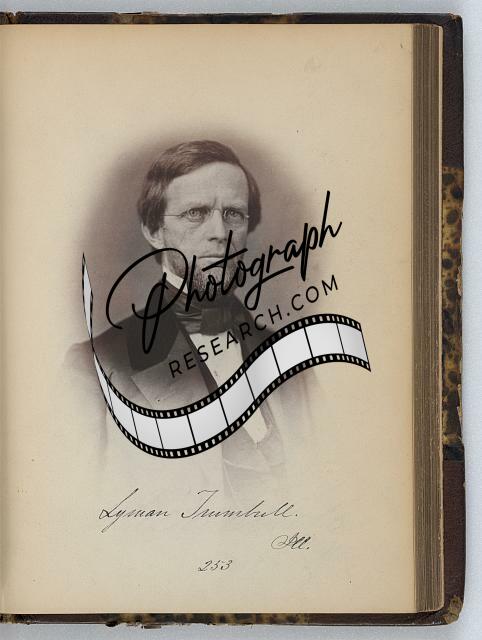 Photograph
RESEARCH.COM
Lyman Trumbull.
Ill.
253